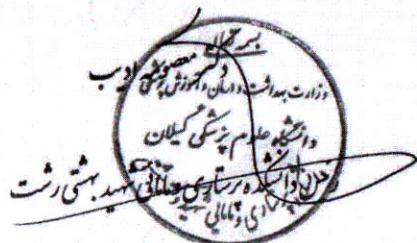 بسمه تعالی
دکتر معصومه ادیب
وزارت بهداشت و درمان و آموزش پزشکی
دانشگاه علوم پزشکی گیلان
دانشکده پرستاری و مامایی شهید بهشتی رشت
پرستاری و مامایی